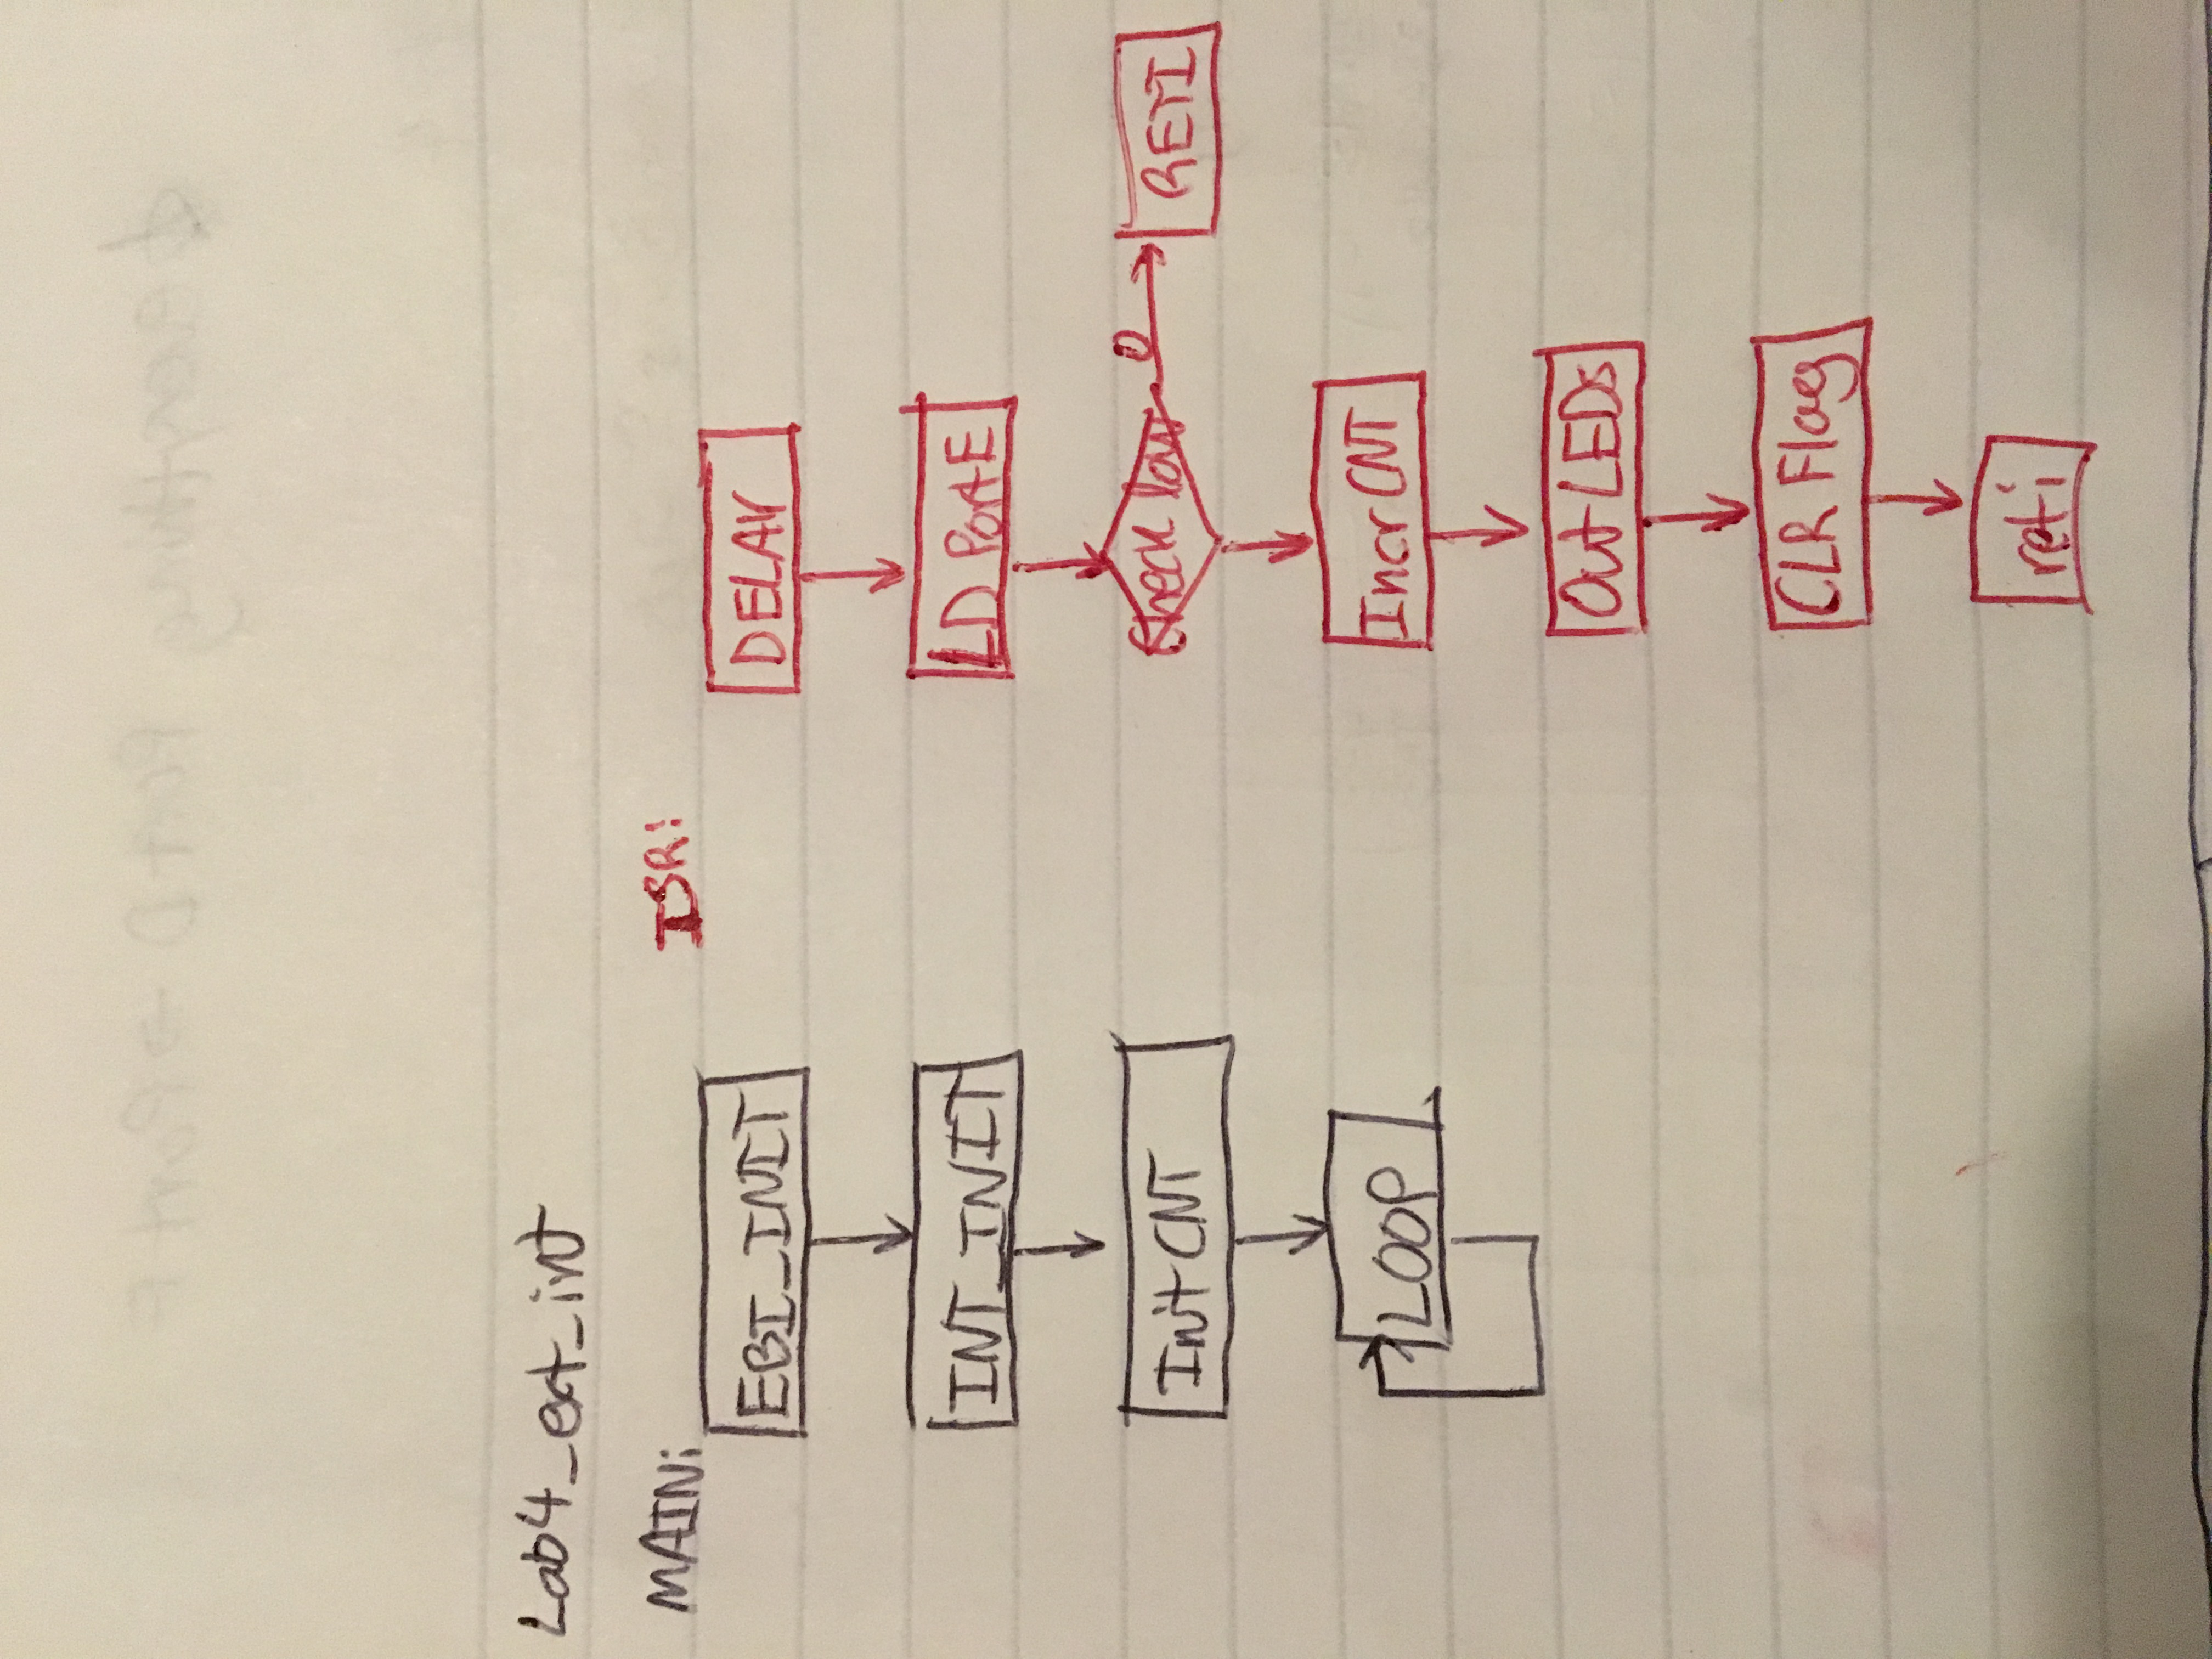 Lab4_ext_int
MAIN:
EBI_INIT
INT_INIT
Init CNT
LOOP
ISR:
DELAY
LD PortE
Check low
0
RETI
Incr CNT
Out LEDs
CLR Flag
reti